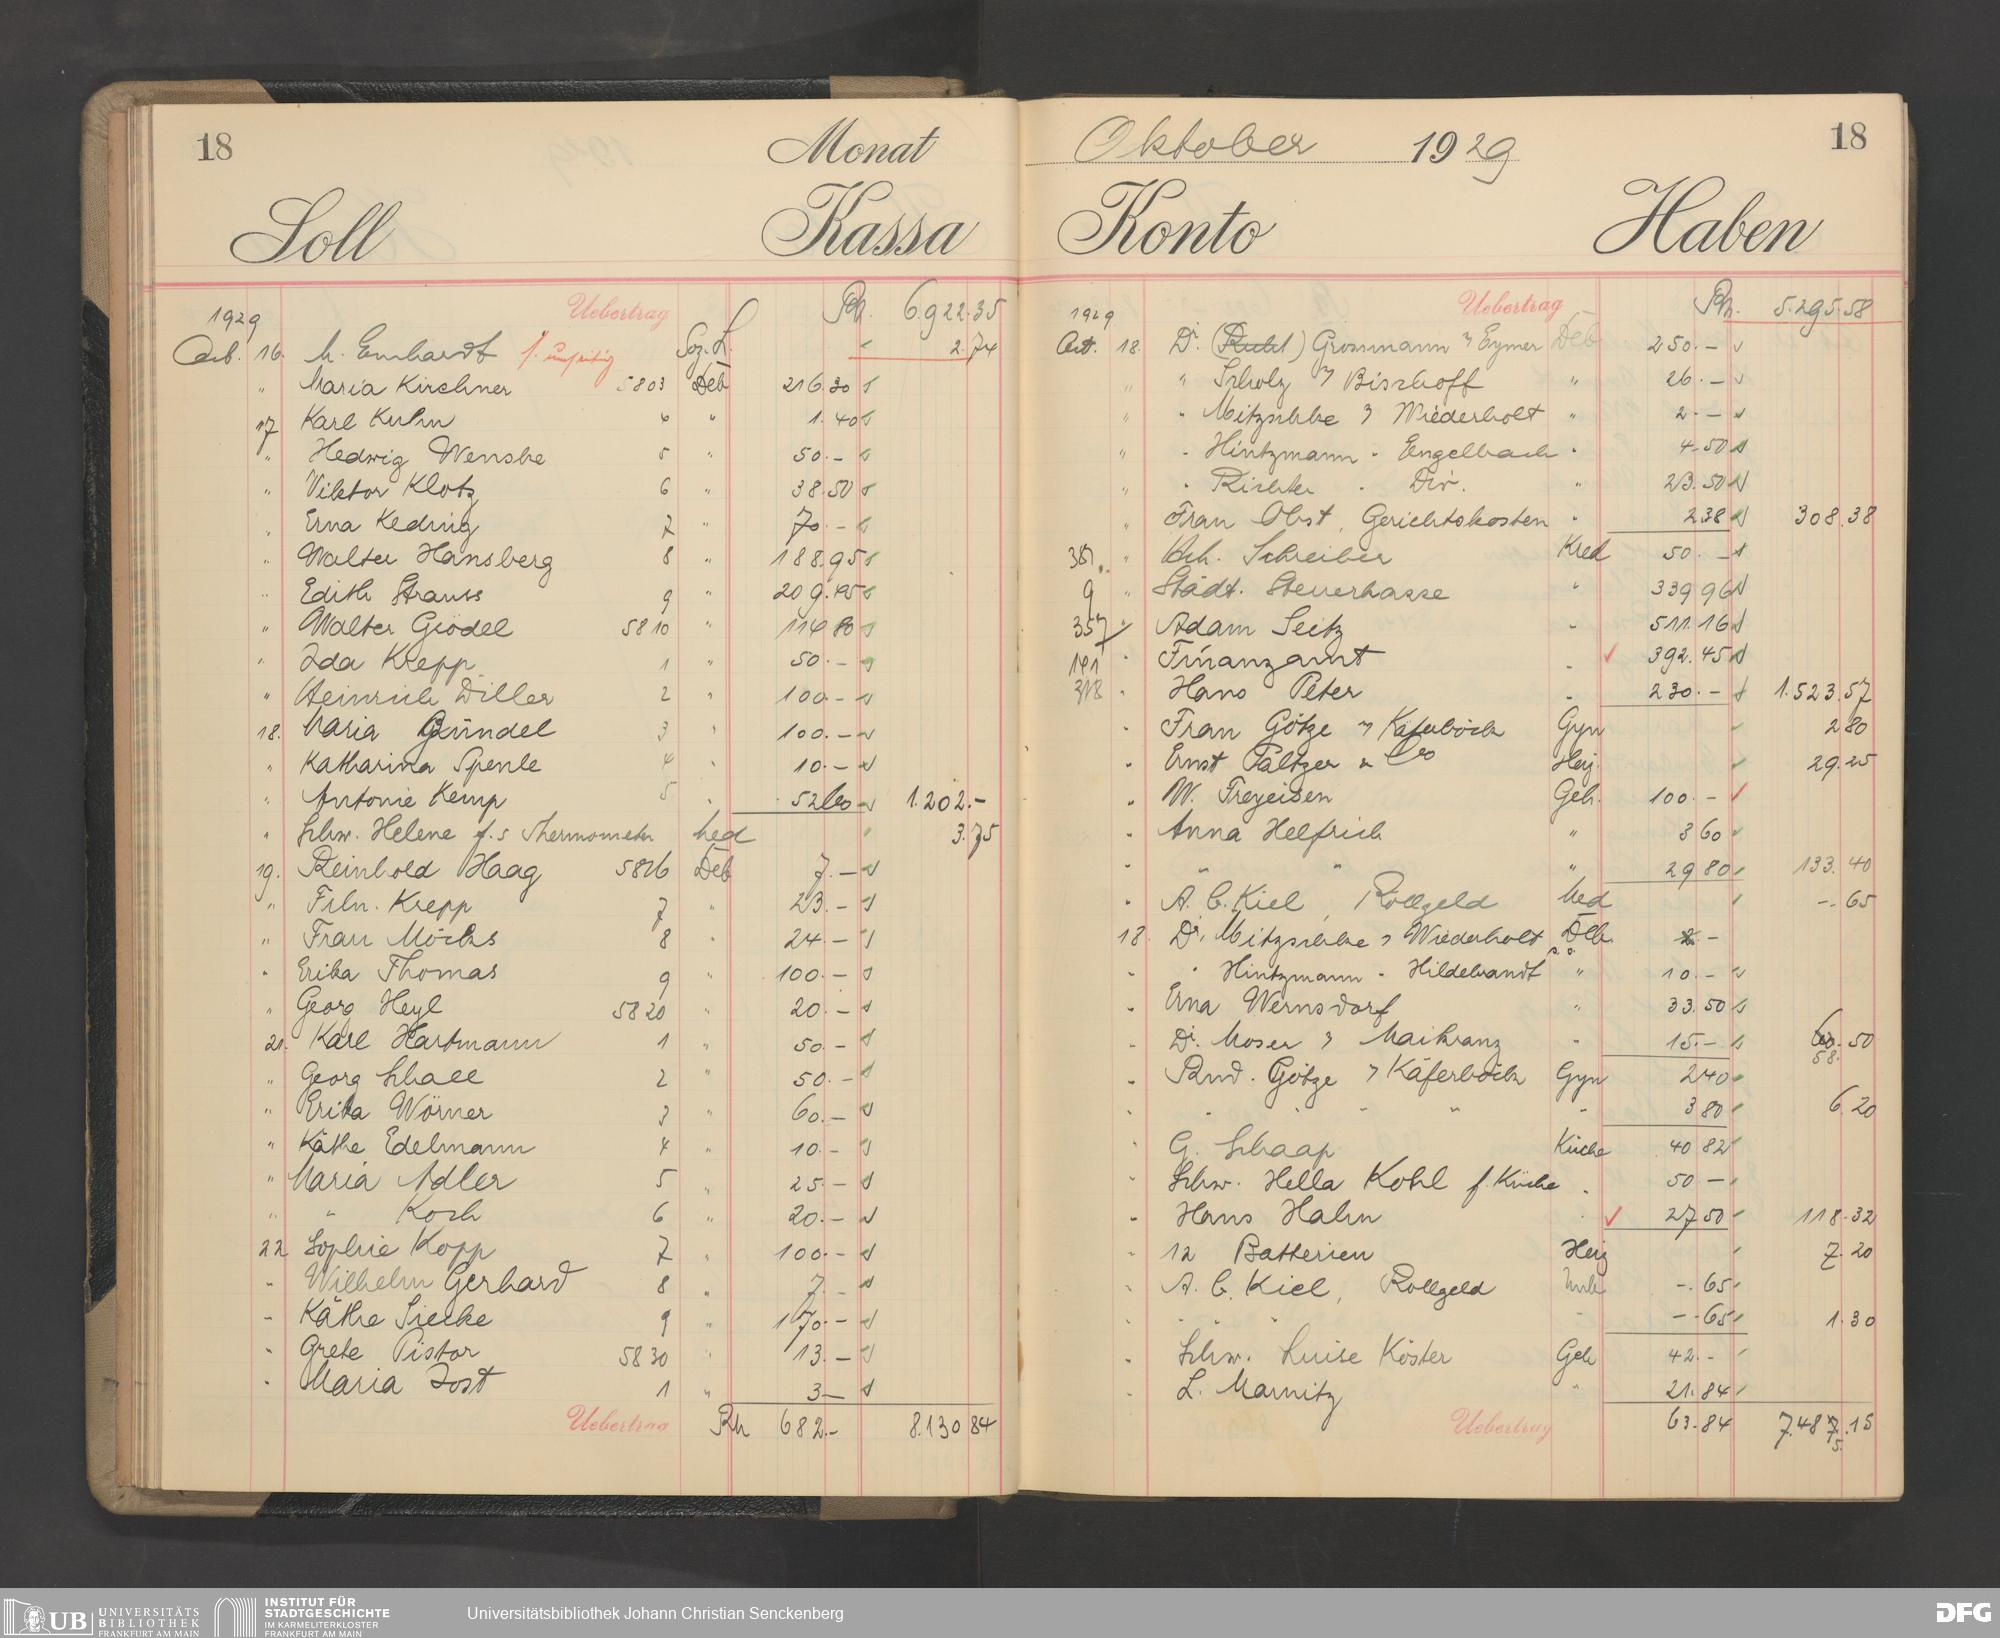 18 Monat
Soll Kassa
Uebertrag Rm. 6.922.35
1929
Okt. 16. M. Emhardt Soz. L. 2.74
" Maria Kirchner 5803 Deb 216.30
17 Karl Kuhn 4 " 1.40
" Hedwig Wenske 5 " 50.–
" Viktor Klotz 6 " 38.50
" Erna Keding 7 " 70.–
" Walter Hansberg 8 " 188.95
" Edith Strauss 9 " 209.45
" Walter Giödel 5810 " 114.80
" Ida Krepp 1 " 50.–
" Heinrich Diller 2 " 100.–
18. Maria Gündel 3 " 100.–
" Katharina Spenle 4 " 10.–
" Antonie Kemp 5 " 52.60 1.202.–
" Schw. Helene f. s Thermometer Med 3.75
19. Reinhold Haag 5816 Deb 7.–
" Frln. Krepp 7 " 23.–
" Frau Möcks 8 " 24.–
" Erika Thomas 9 " 100.–
" Georg Heyl 5820 " 20.–
21. Karl Hartmann 1 " 50.–
" Georg Schall 2 " 50.–
" Erika Wörner 3 60.–
" Käthe Edelmann 4 " 10.–
" Maria Adler 5 " 25.–
" " Koch 6 " 20.–
22 Sophie Kopp 7 " 100.–
" Wilhelm Gerhard 8 " 7.–
" Käthe Siecke 9 " 170.–
" Grete Pistor 5830 " 13.–
" Maria Jost 1 " 3–
Uebertrag Rm 682.– 8.130 84
Oktober 1929 18
Konto Haben
Uebertrag Rm. 5.295.58
1929
Okt. 18. Dr. (Ruhl) Grossmann & Eymer Deb 250.–
" " Scholz & Bischoff " 26.–
" " Mitzschke & Wiederholt " 2.–
" " Hintzmann - Engelbach " 4.50
" " Richter - Div. " 23.50
" Frau Obst, Gerichtskosten " 2 38 308.38
381. " Bch. Schreiber Kred 50.–
9 " Städt. Steuerkasse " 339 96
357 " Adam Seitz " 511.16
191 " Finanzamt " 392.45
318 " Hans Peter " 230.– 1.523.57
" Frau Götze & Käferböck Gyn 2 80
" Ernst Paltzer & Co Heiz. 29.25
" W. Freyeisen Geh. 100.–
" Anna Helfrich " 3 60
" " " " 29 80 133.40
" A. C. Kiel, Rollgeld Med –.65
18. Dr. Mitzschke & Wiederholt Deb 2.–
" " Hintzmann - Hildebrandt " 10.–
" Erna Wernsdorf " 33.50
" Dr. Moser & Maikranz " 15.– 60.50
58.
" Rud. Götze & Käferböck Gyn 2 40
" " " " " " 3 80 6.20
" G. Schaap Küche 40 82
" Schw. Hella Kohl f. Küche " 50 –
" Hans Hahn " 27 50 118.32
" 12 Batterien Heiz 7.20
" A. C. Kiel, Rollgeld –.65
" " " " –.65 1.30
" Schw. Luise Köster Geh 42.–
" L. Marnitz " 21.84
Uebertrag 63.84 7.487.15
5.
UB UNIVERSITÄTS
BIBLIOTHEK
FRANKFURT AM MAIN
INSTITUT FÜR
STADTGESCHICHTE
IM KARMELITERKLOSTER
FRANKFURT AM MAIN
Universitätsbibliothek Johann Christian Senckenberg
DFG